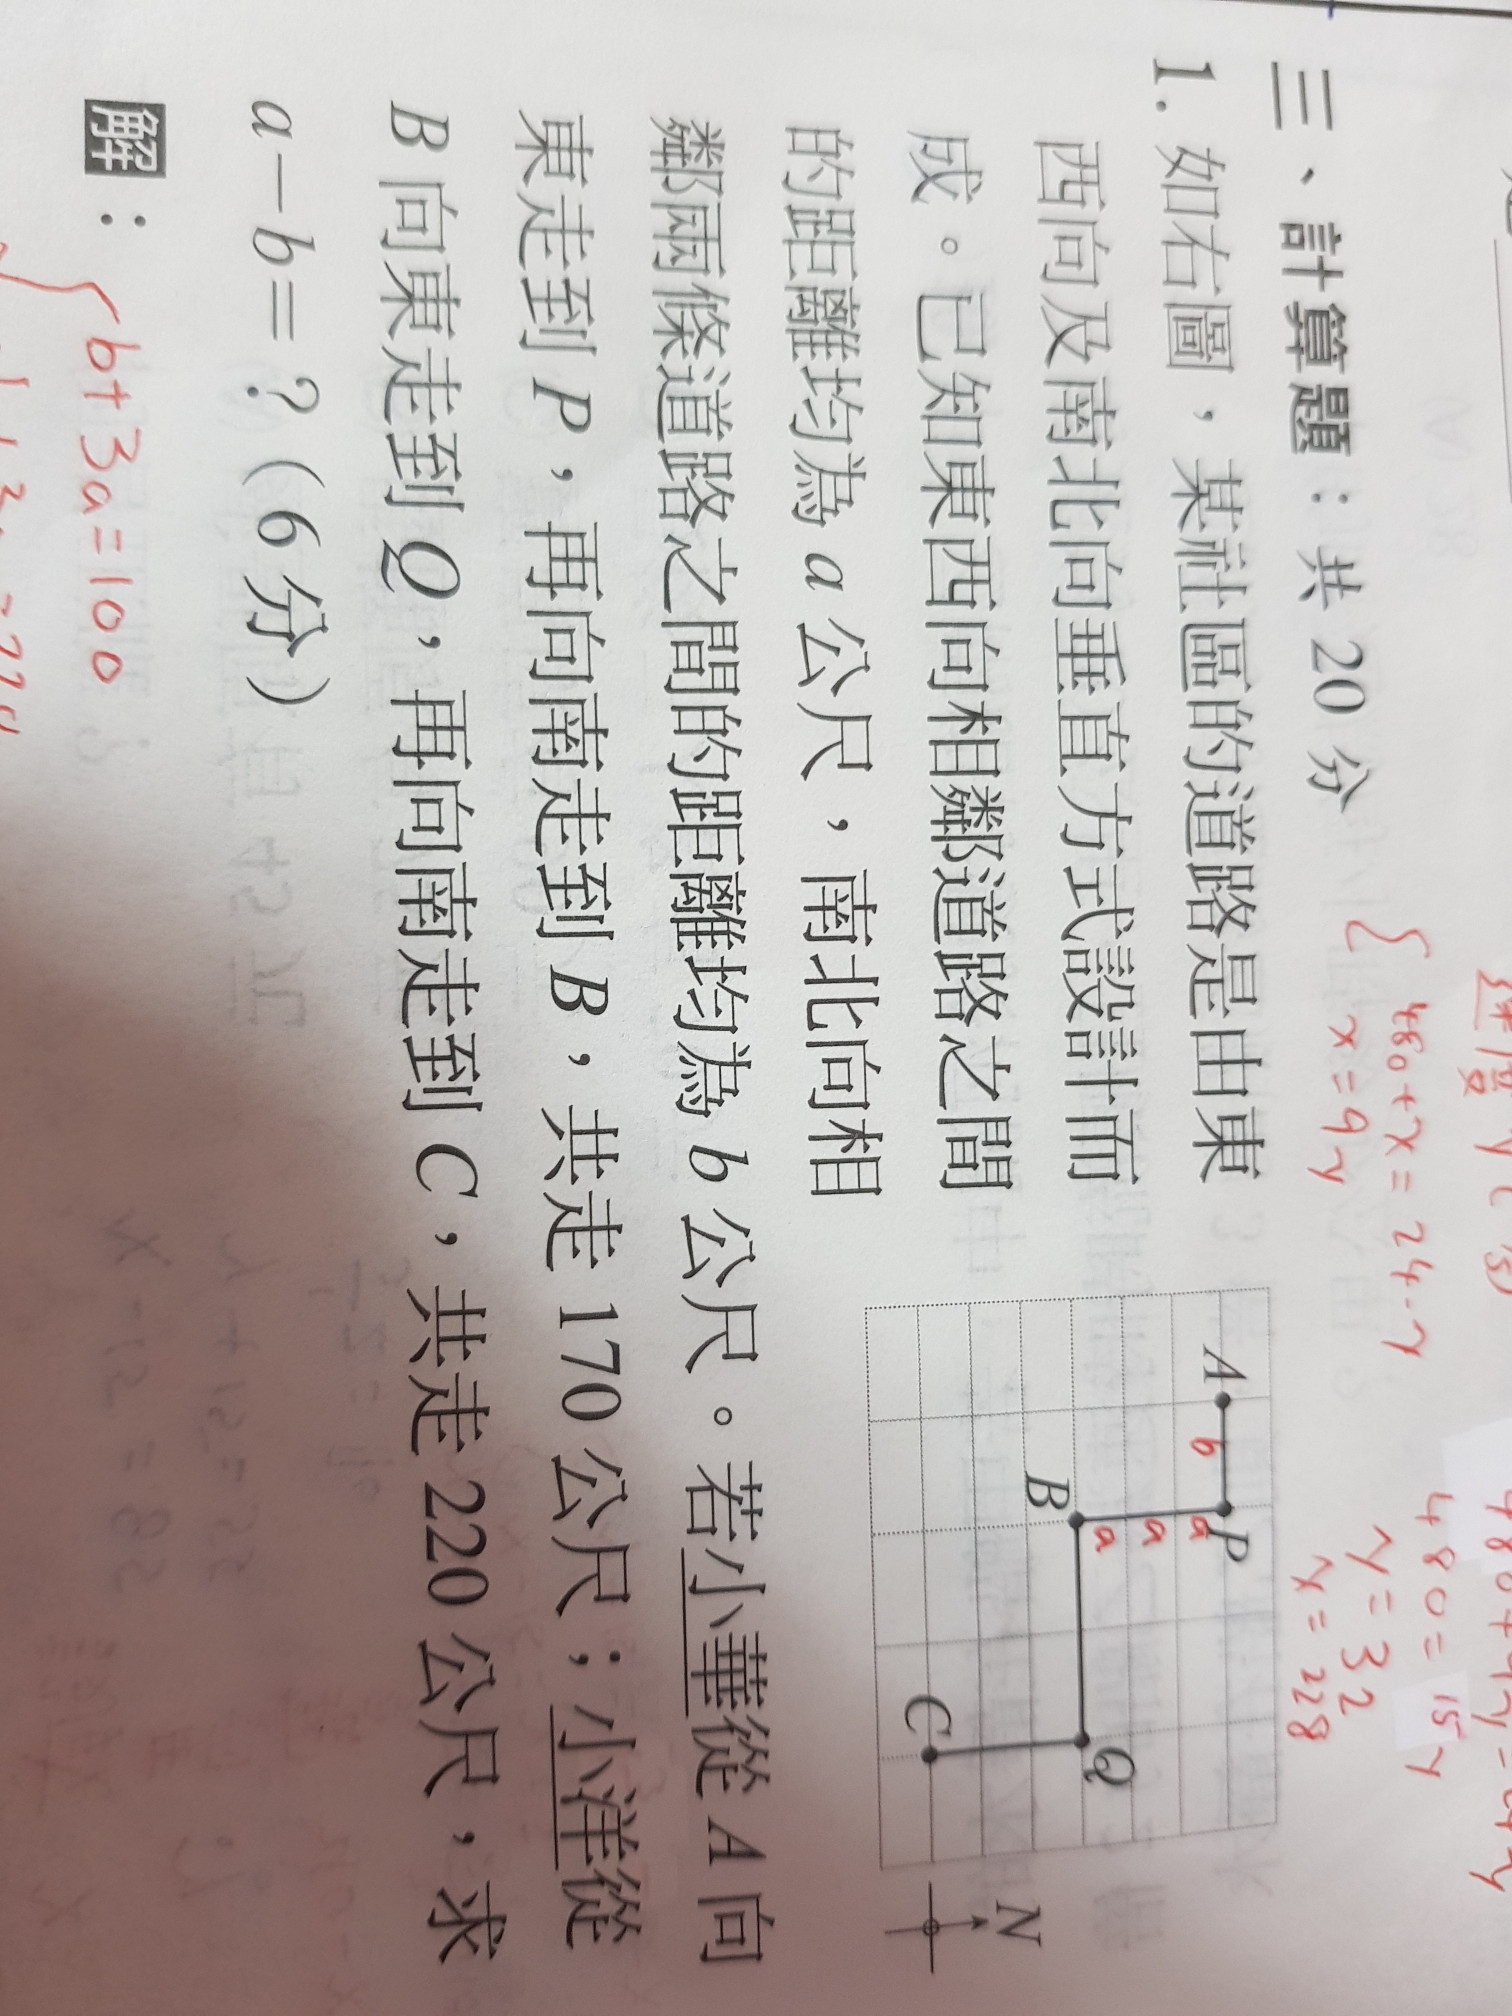 三、計算題：共 20 分
1. 如右圖，某社區的道路是由東
西向及南北向垂直方式設計而
成。已知東西向相鄰道路之間
的距離均為 a 公尺，南北向相
鄰兩條道路之間的距離均為 b 公尺。若小華從 A 向
東走到 P，再向南走到 B，共走 170 公尺；小洋從
B 向東走到 Q，再向南走到 C，共走 220 公尺，求
a－b＝？(6 分)
解：
b+3a=100
A
P
b
a
a
a
B
Q
C
N
480+x=24·y
x=9y
480=15y
y=32
x=228